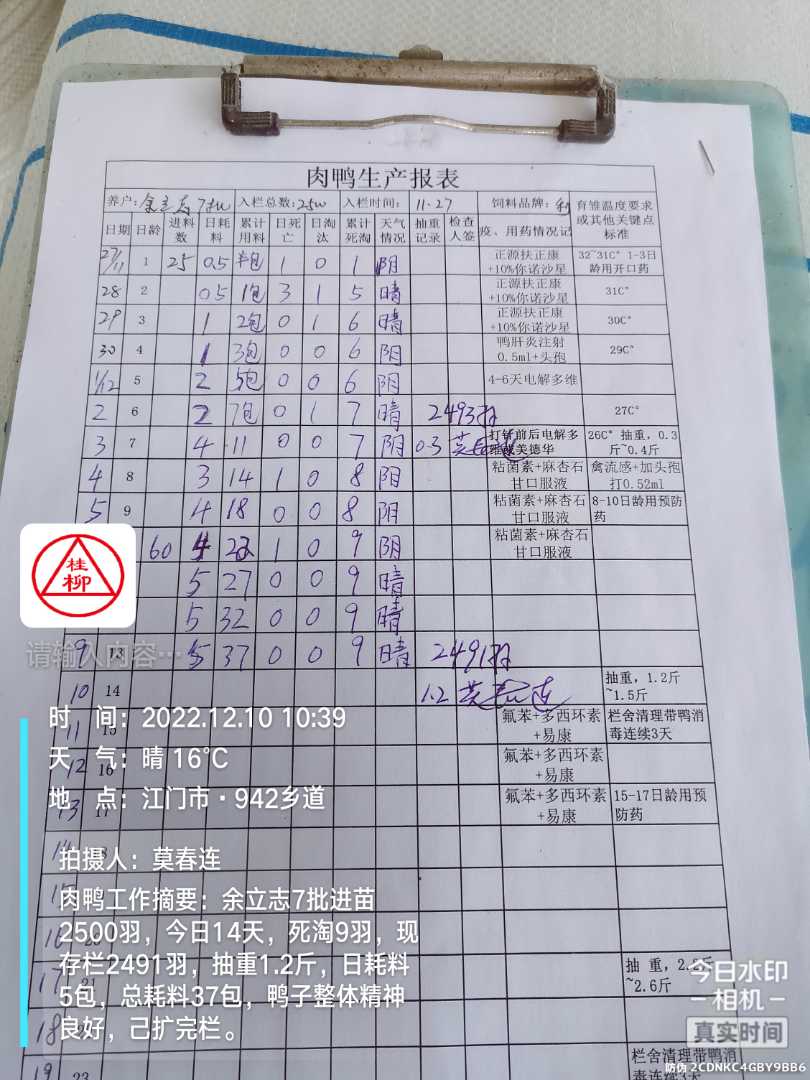 肉鸭生产报表
养户: 余立志7批 入栏总数: 2500 入栏时间: 11.27 饲料品牌: 育雏温度要求或其他关键点标准
日期 日龄 进料数 日耗料 累计用料 日死亡 日淘汰 累计死淘 天气情况 抽重记录 检查人签 疫、用药情况记
27/11 1 25 0.5 半包 1 0 1 阴 正源扶正康+10%你诺沙星 32~31C° 1-3日龄用开口药
28 2 0.5 1包 3 1 5 晴 正源扶正康+10%你诺沙星 31C°
29 3 1 2包 0 1 6 晴 正源扶正康+10%你诺沙星 30C°
30 4 1 3包 0 0 6 阴 鸭肝炎注射0.5ml+头孢 29C°
1/12 5 2 5包 0 0 6 阴 4-6天电解多维
2 6 2 7包 0 1 7 晴 2493羽 27C°
3 7 4 11 0 0 7 阴 0.3 打针前后电解多 美德华 26C° 抽重，0.3斤~0.4斤
4 8 3 14 1 0 8 阴 粘菌素+麻杏石甘口服液 禽流感+加头孢打0.52ml
5 9 4 18 0 0 8 阴 粘菌素+麻杏石甘口服液 8-10日龄用预防药
60 4 22 1 0 9 阴 粘菌素+麻杏石甘口服液
5 27 0 0 9 晴
5 32 0 0 9 晴
9 13 5 37 0 0 9 晴 2491羽
10 14 1.2 莫春连 抽重，1.2斤~1.5斤
11 15 氟苯+多西环素+易康 栏舍清理带鸭消毒连续3天
12 16 氟苯+多西环素+易康
13 17 氟苯+多西环素+易康 15-17日龄用预防药
14
15
16
17 抽 重，2.2斤~2.6斤
18
19 23 栏舍清理带鸭消毒连续3天
桂柳
请输入内容…
时 间：2022.12.10 10:39
天 气：晴 16℃
地 点：江门市·942乡道
拍摄人：莫春连
肉鸭工作摘要：余立志7批进苗
2500羽，今日14天，死淘9羽，现
存栏2491羽，抽重1.2斤，日耗料
5包，总耗料37包，鸭子整体精神
良好，己扩完栏。
今日水印
相机
真实时间
防伪 2CDNKC4GBY9BB6